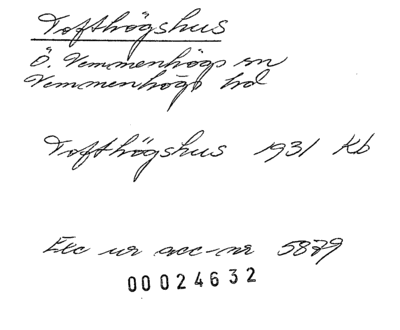 Tofthögshus
Ö. Vemmenhögs sn
Vemmenhögs hd
Tofthögshus 1931 Kb
Exc ur acc-nr 5879
00024632